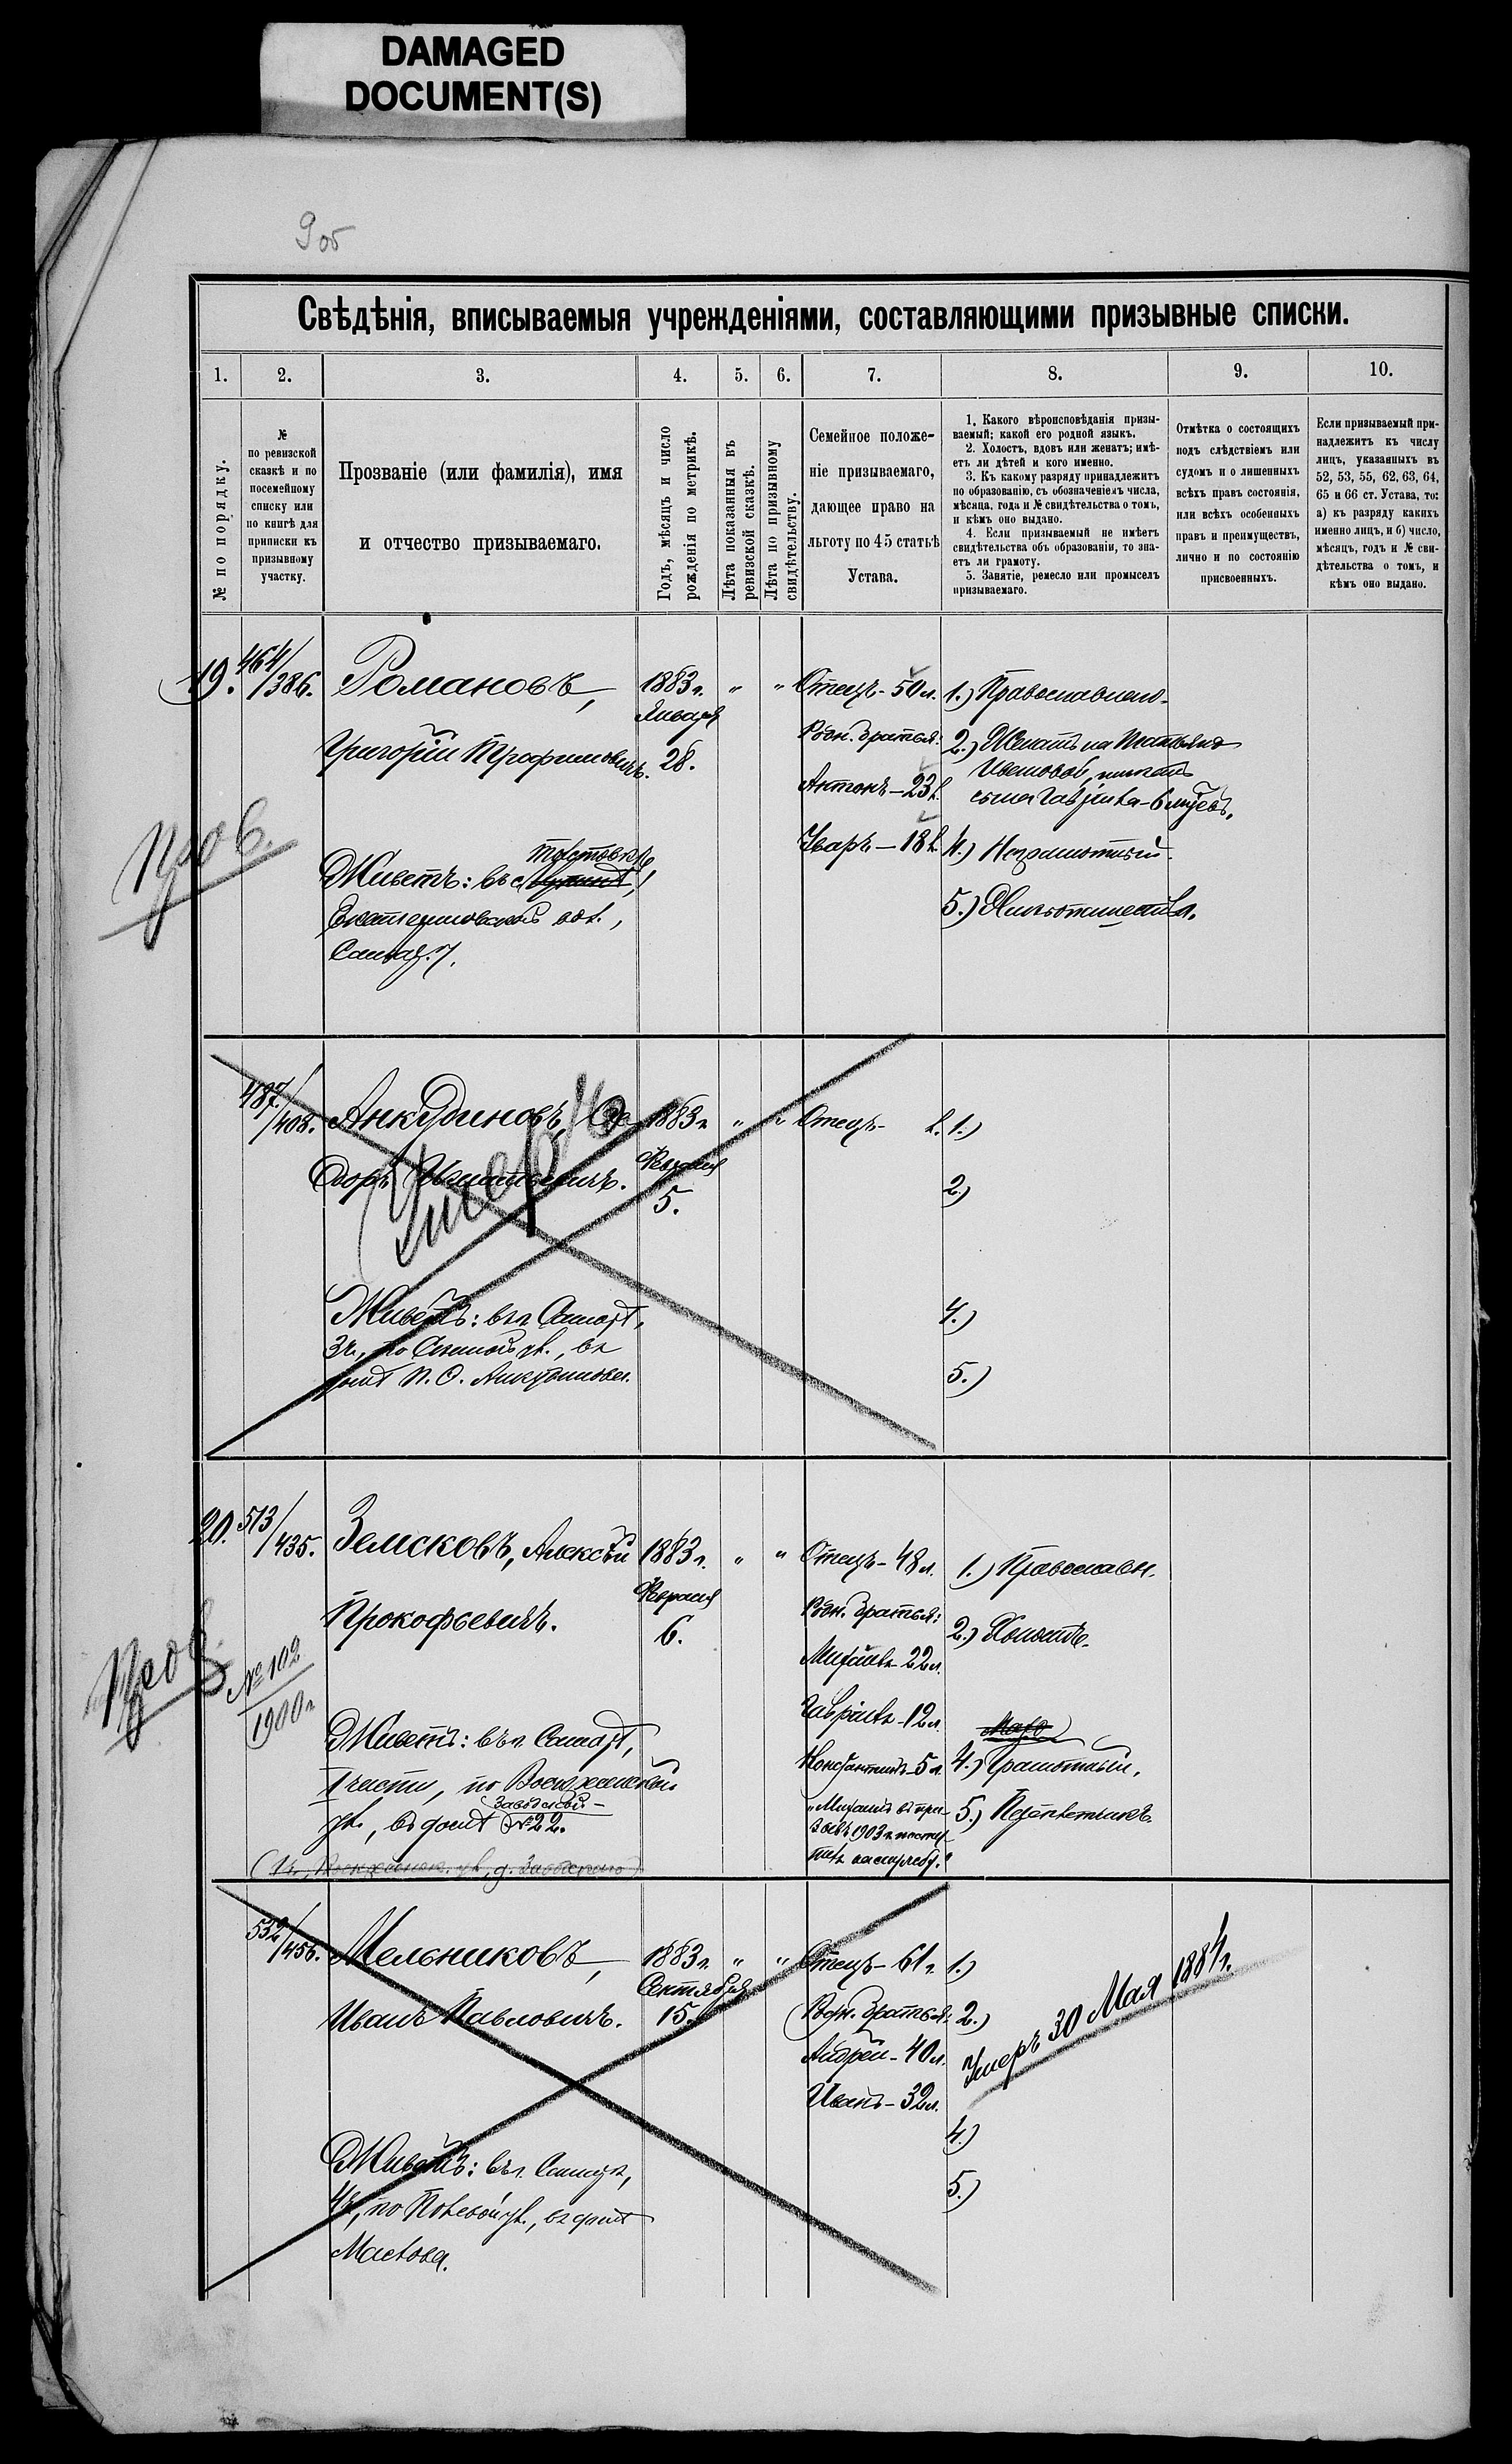 DAMAGED
DOCUMENT(S)
9 об
Свѣдѣнія, вписываемыя учрежденіями, составляющими призывные списки.
1. 2. 3. 4. 5. 6. 7. 8. 9. 10.
№ по порядку.
№
по ревизской
сказкѣ и по
посемейному
списку или
по книгѣ для
приписки къ
призывному
участку.
Прозваніе (или фамилія), имя
и отчество призываемаго.
Годъ, мѣсяцъ и число
рожденія по метрикѣ.
Лѣта показанныя въ
ревизской сказкѣ.
Лѣта по призывному
свидѣтельству.
Семейное положе-
ніе призываемаго,
дающее право на
льготу по 45 статьѣ
Устава.
1. Какого вѣроисповѣданія призы-
ваемый; какой его родной языкъ.
2. Холостъ, вдовъ или женатъ; имѣ-
етъ ли дѣтей и кого именно.
3. Къ какому разряду принадлежитъ
по образованію, съ обозначеніемъ числа,
мѣсяца, года и № свидѣтельства о томъ,
и кѣмъ оно выдано.
4. Если призываемый не имѣетъ
свидѣтельства объ образованіи, то зна-
етъ ли грамоту.
5. Занятіе, ремесло или промыселъ
призываемаго.
Отмѣтка о состоящихъ
подъ слѣдствіемъ или
судомъ и о лишенныхъ
всѣхъ правъ состоянія,
или всѣхъ особенныхъ
правъ и преимуществъ,
лично и по состоянію
присвоенныхъ.
Если призываемый при-
надлежитъ къ числу
лицъ, указанныхъ въ
52, 53, 55, 62, 63, 64,
65 и 66 ст. Устава, то:
а) къ разряду какихъ
именно лицъ, и б) число,
мѣсяцъ, годъ и № сви-
дѣтельства о томъ, и
кѣмъ оно выдано.
19. 464/386. Романовъ,
Григорій Трофимовичъ.
1883 г.
Января
28.
" "
Отецъ - 50 л.
Родн. братья:
Антонъ - 23 л.
Уваръ - 18 л.
1.) Православнаго.
2.) Женатъ на Татьянѣ
Ивановой, имѣетъ
сына Гавріила - 6 мѣсяц.
4.) Неграмотный.
5.) Хлѣбопашество.
Живетъ: въ с.
Екатериновской вол.,
Самар. у.
487/408. Анкудиновъ, Ѳе-
доръ Игнатьевичъ.
1883 г.
Февраля
5.
" "
Отецъ - л.
1.)
2.)
4.)
5.)
Умеръ
Живетъ: въ г. Самарѣ,
3 ч., по Сѣнной ул., въ
домѣ П. О. Анкудинова.
20. 513/435. Земсковъ, Алексѣй
Прокофьевичъ.
1883 г.
Февраля
6.
" "
Отецъ - 48 л.
Родн. братья:
Михаилъ - 22 л.
Гавріилъ - 12 л.
Константинъ - 5 л.
"Михаилъ въ при-
зывъ 1903 г. посту-
1.) Православн.
2.) Холостъ.
4.) Грамотный.
5.)
№ 102
1900 г.
Живетъ: въ г. Самарѣ,
1 части, по Воскресенской
ул., въ домѣ № 22.
532/456. Мельниковъ,
Иванъ Павловичъ.
1883 г.
Сентября
15.
" "
Отецъ - 61 г.
Родн. братья:
Андрей - 40 л.
Иванъ - 32 л.
1.)
2.)
4.)
5.)
Умеръ 30 Мая 1884 г.
Живетъ: въ г. Самарѣ,
4 ч., по Полевой ул., въ домѣ
Маслова.